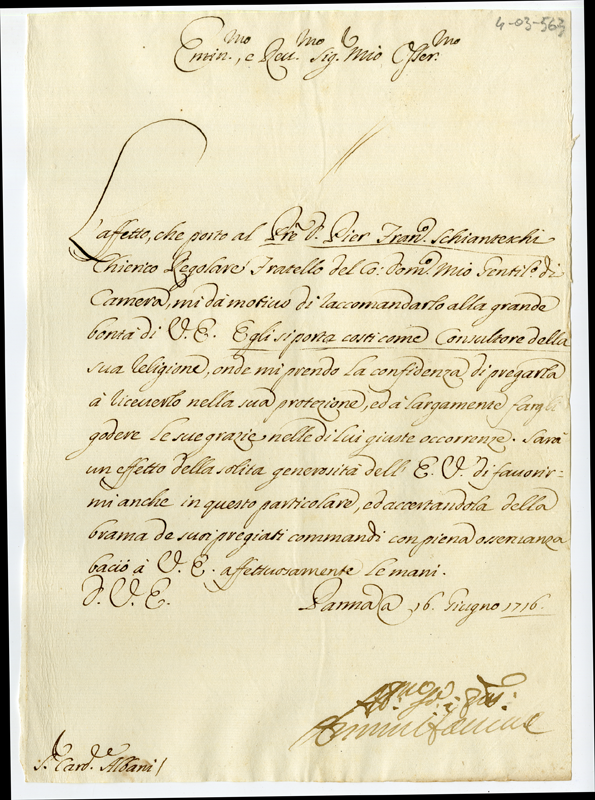 4-03-563
Emin.mo, e Reu.mo Sig. Mio Osser.mo
L'affetto, che porto al Pre D. Pier Fran.o Schianteschi
Chierico Regolare Fratello del Co: Dom.o Mio Gentil.o di
Camera, mi dà motiuo di raccomandarlo alla grande
bontà di V. E. Egli si porta costì come Consultore della
sua Religione, onde mi prendo la confidenza di pregarla
à riceuerlo nella sua protezione, ed à largamente fargli
godere le sue grazie nelle di lui giuste occorrenze. Sarà
un effetto della solita generosità dell' E. V. di fauorir-
mi anche in questo particolare, ed accertandola della
brama de suoi pregiati commandi con piena osseruanza
bacio à V. E. affettuosamente le mani.
D. V. E.
Parma 16. Giugno 1716.
S.r Card.e Albani